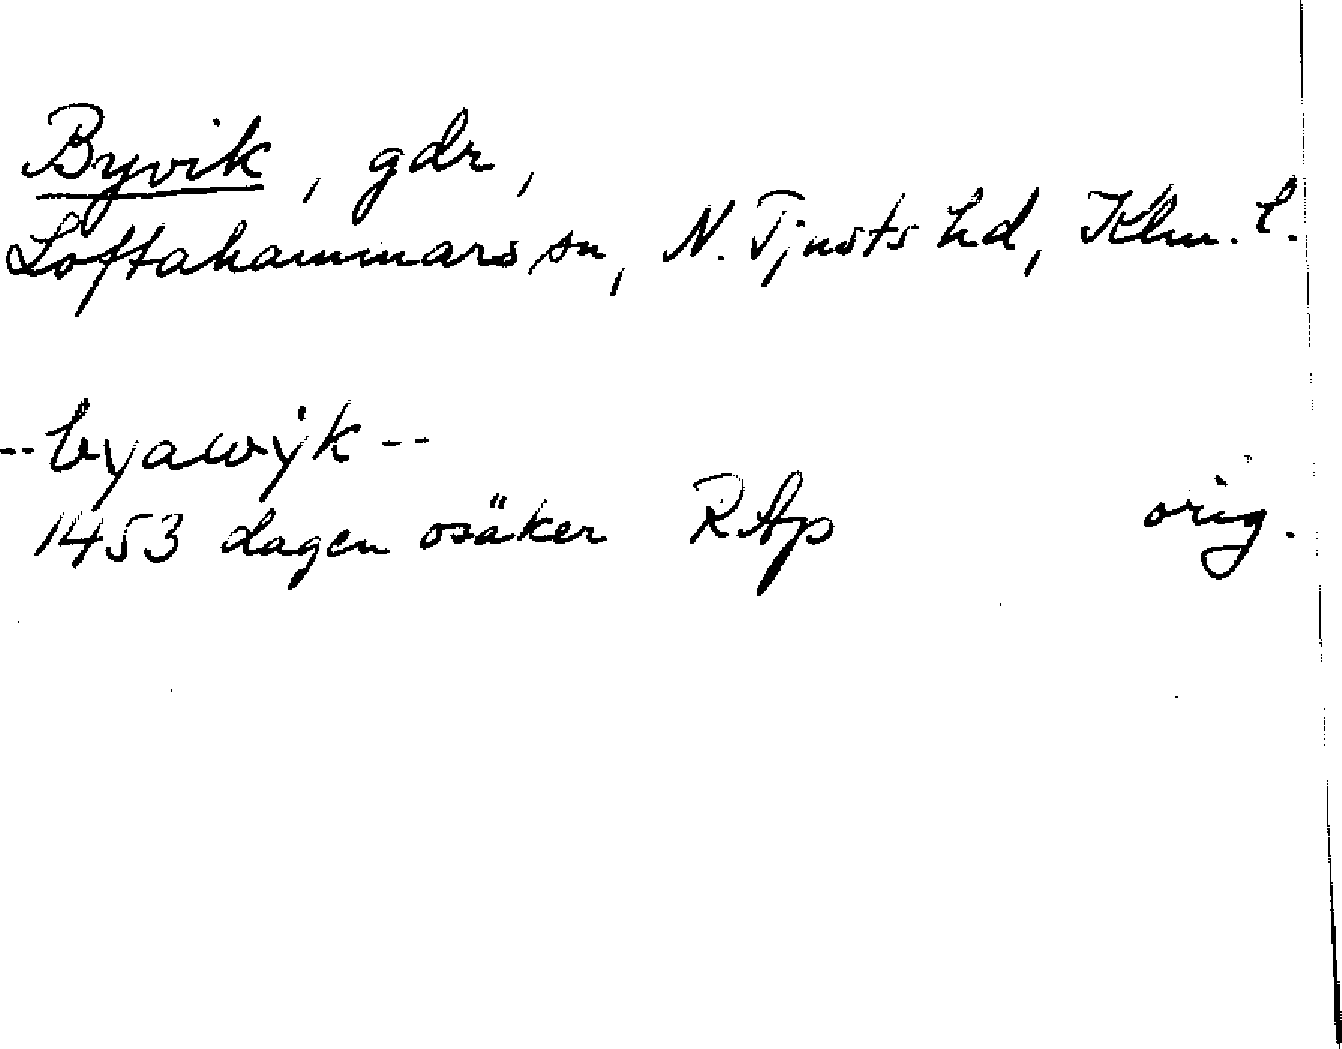 Byvik, gdr,
Loftahammars sn, N. Tjusts hd, Klm. l.
-- byawÿk --
1453 dagen osäker RAp orig.